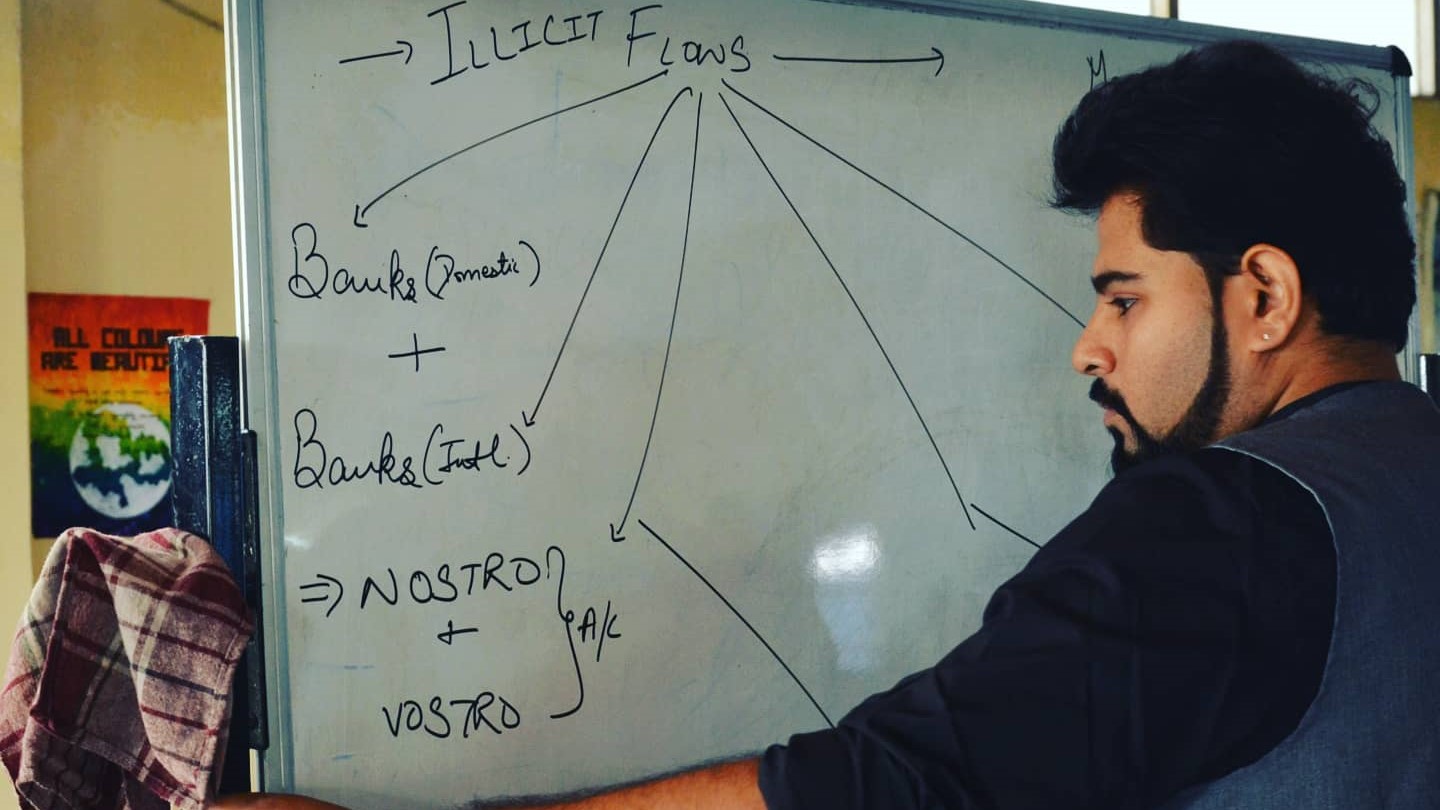 → ILLICIT FLOWS →
Banks (Domestic)
+
Banks (Intl.)
⇒ NOSTRO
+
VOSTRO
} A/C
ALL COLOURS
ARE BEAUTIF